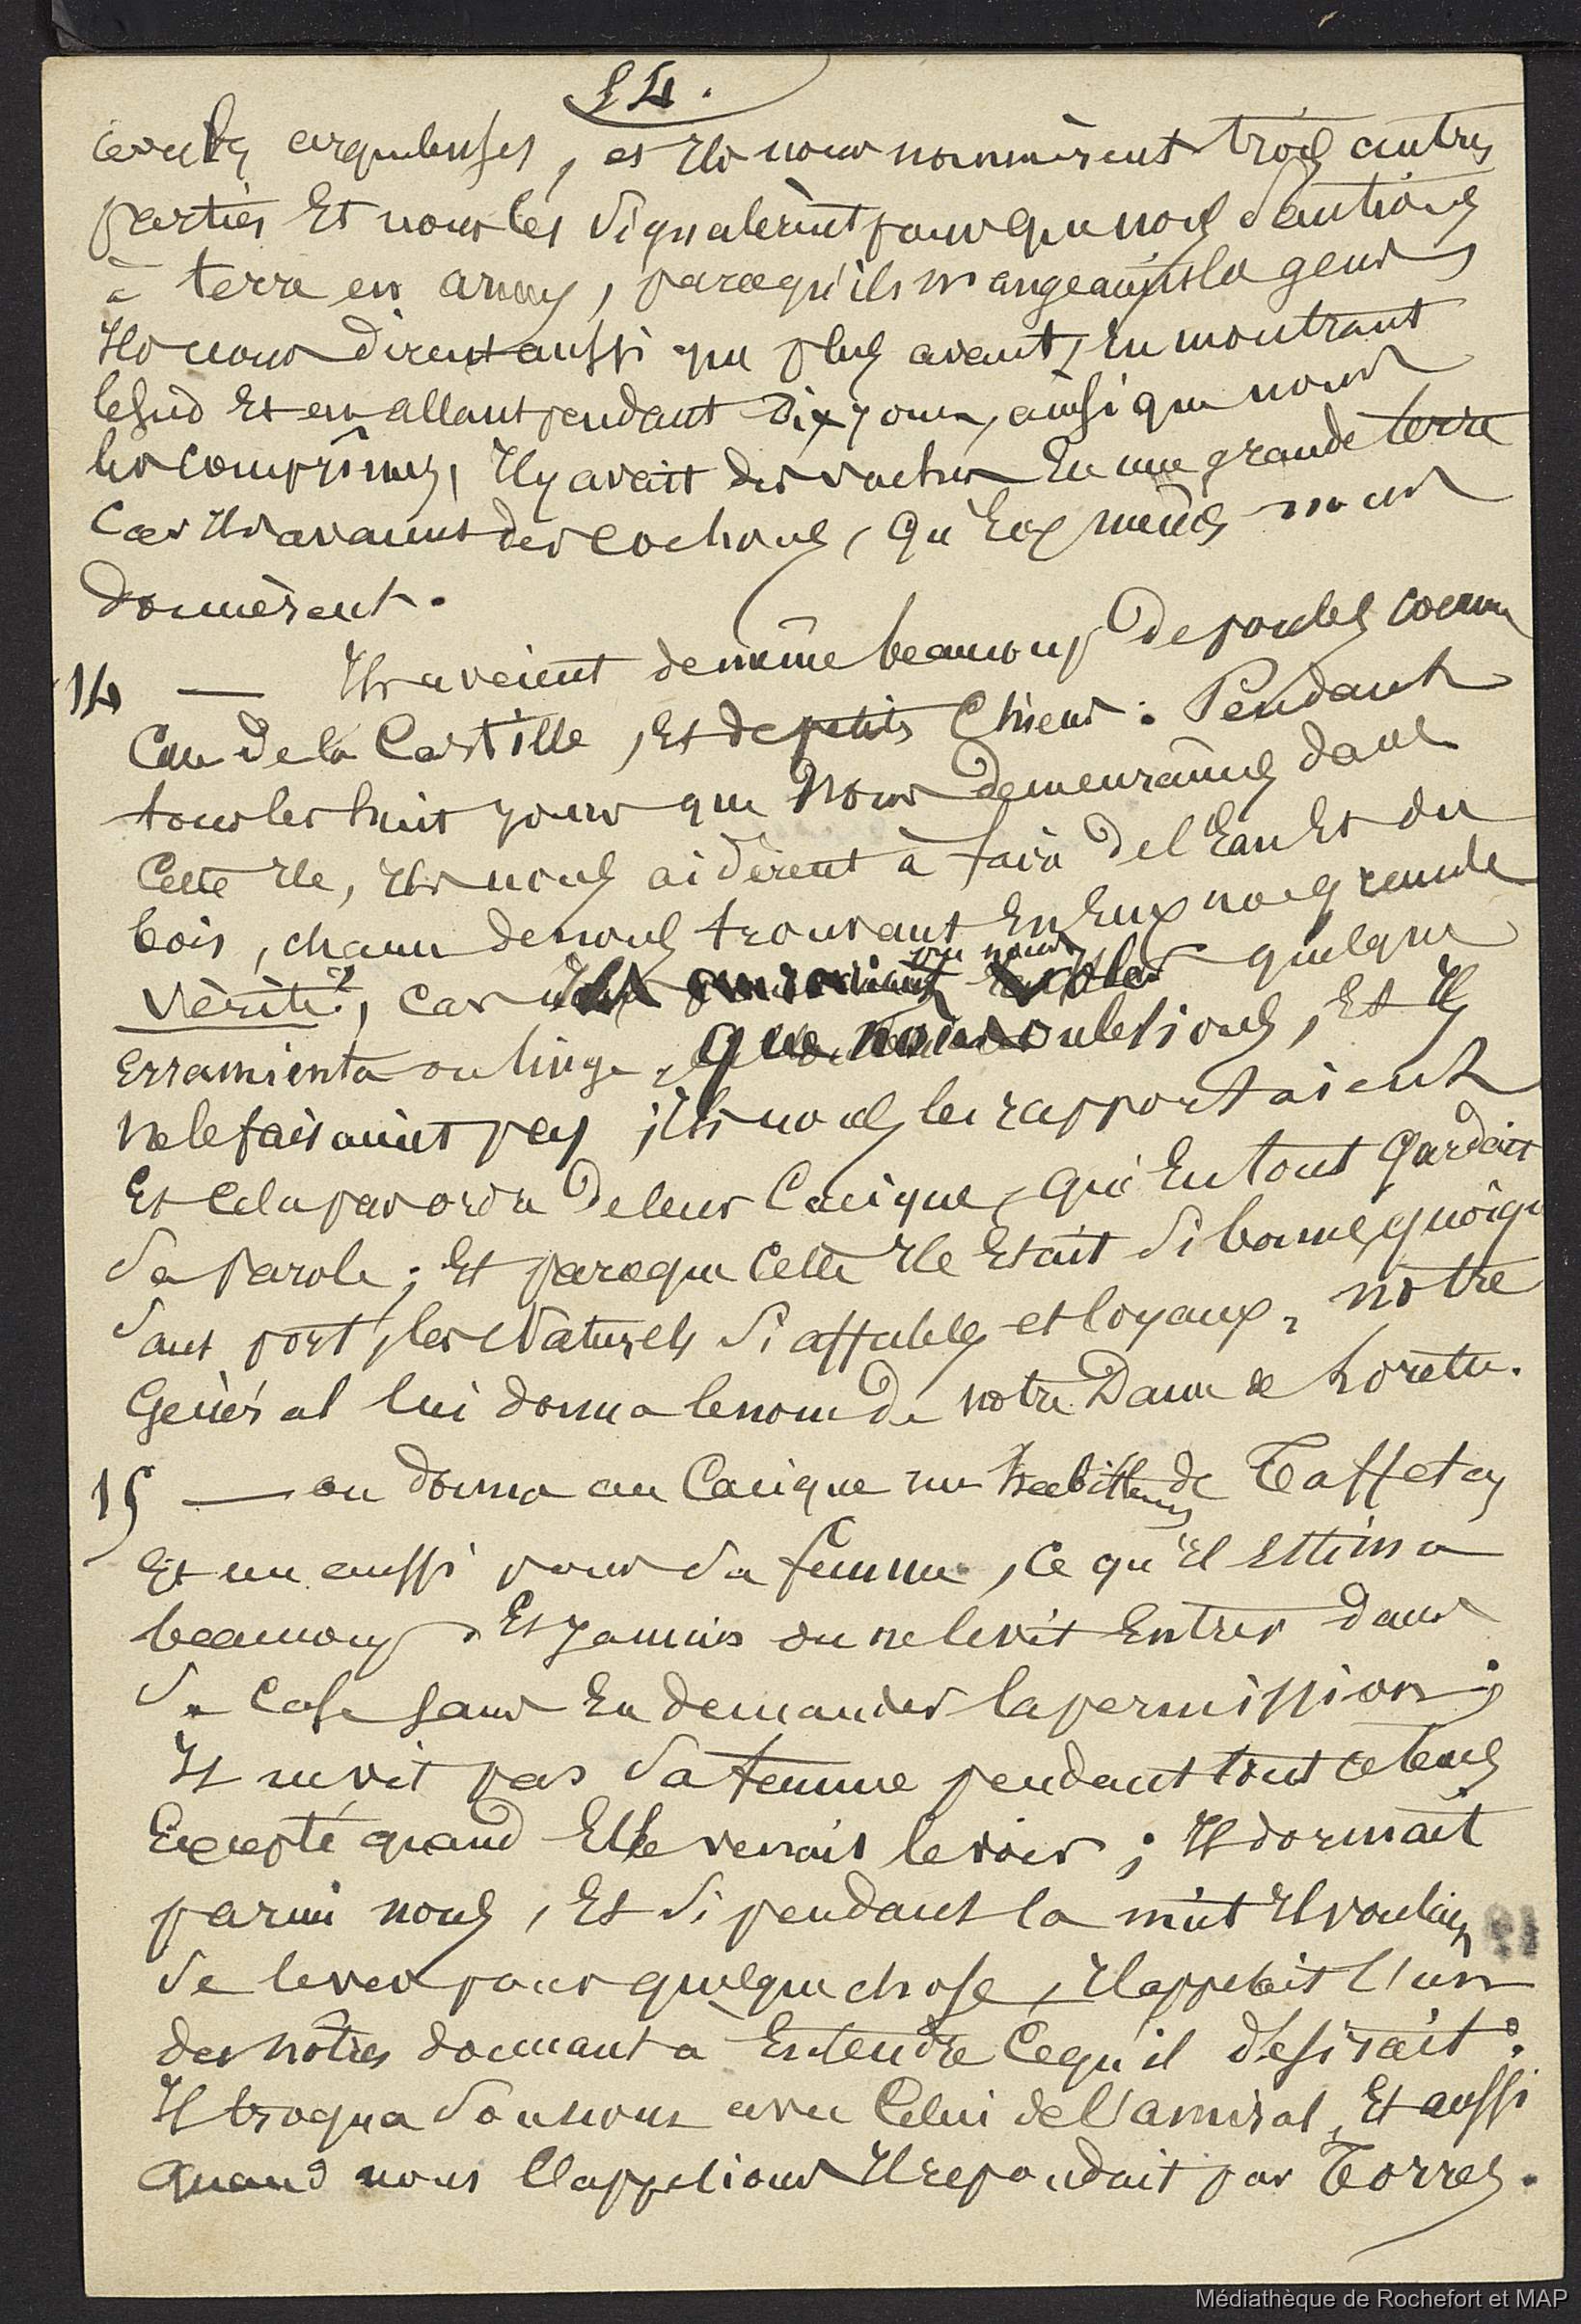 24.
arquebuses, et Ils nous nommèrent trois autres
parties Et nous les signalèrent pour que nous sautions
à terre en armes, parcequ'ils mangeaient la gens
Ils nous dirent aussi que plus avant, En montrant
le sud Et en allant pendant dix jours, ainsi que nous
les comprîmes, Il y avait des vaches En une grande terre
Car Ils avaient des cochons, qu'Eux mêmes nous
donnèrent.
14 — Ils avaient de même beaucoup de poules comme
Celles de la Castille, Et de petits Chiens. Pendant
tous les huit jours que Nous demeurâmes dans
Cette Ile, Ils nous aidèrent à faire de l'Eau Et du
bois, chacun de nous trouvant En Eux grande
vérité, Car quelque
Erramienta ou linge que nous oublesions, Et Ils
ne le faisaient pas, ils nous les rapportaient
Et cela par ordre de leur Cacique, qui En tout gardait
sa parole; Et parceque Cette Ile Etait si bonne, quoique
sans port, les Naturels si affables et loyaux, nôtre
Général lui donna le nom de notre Dame de Lorette.
15 — on donna au Cacique un habillement de Taffetas
Et un aussi pour sa femme, ce qu'Il Estima
beaucoup. Et jamais on ne le vit Entrer dans
sa Case sans En demander la permission;
Il ne vit pas sa femme pendant tout ce tems
Excepté quand Elle venait le voir; Il dormait
parmi nous, Et si pendant la nuit Il voulait
se lever pour quelque chose, Il appelait l'un
des nôtres donnant à Entendre Ce qu'il desirait.
Il troqua son nom avec Celui de l'amiral, Et aussi
quand nous l'appelions Il repondait par Torres.
Médiathèque de Rochefort et MAP